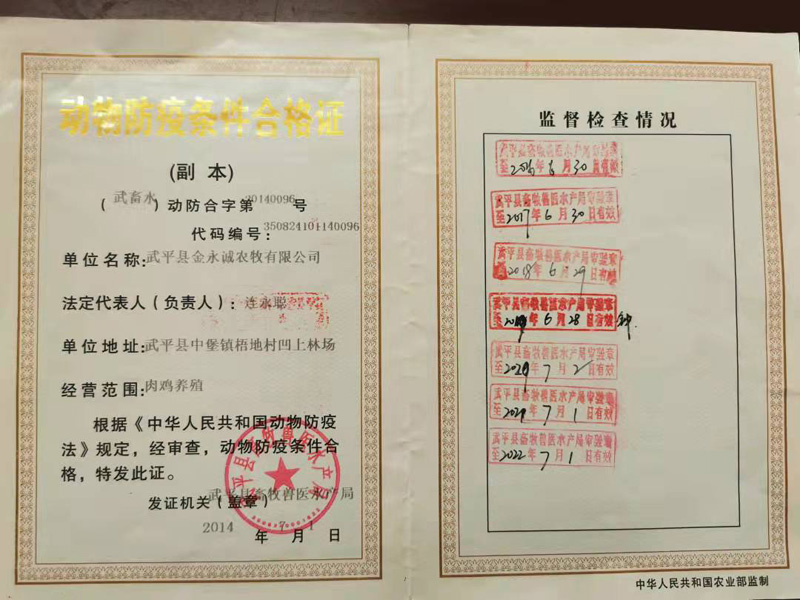 动物防疫条件合格证
(副 本)
(武畜水)动防合字第20140096号
代码编号:350824101140096
单位名称:武平县金永诚农牧有限公司
法定代表人(负责人):连永聪
单位地址:武平县中堡镇梧地村凹上林场
经营范围:肉鸡养殖
根据《中华人民共和国动物防疫
法》规定,经审查,动物防疫条件合
格,特发此证。
发证机关(盖章)武平县畜牧兽医水产局
2014年7月1日
武平县畜牧兽医水产局
监督检查情况
武平县畜牧兽医水产局审验章
至2016年6月30日有效
武平县畜牧兽医水产局审验章
至2017年6月30日有效
武平县畜牧兽医水产局审验章
至2018年6月29日有效
武平县畜牧兽医水产局审验章
至2019年6月28日有效
武平县畜牧兽医水产局审验章
至2020年7月2日有效
武平县畜牧兽医水产局审验章
至2021年7月1日有效
武平县畜牧兽医水产局审验章
至2022年7月1日有效
中华人民共和国农业部监制